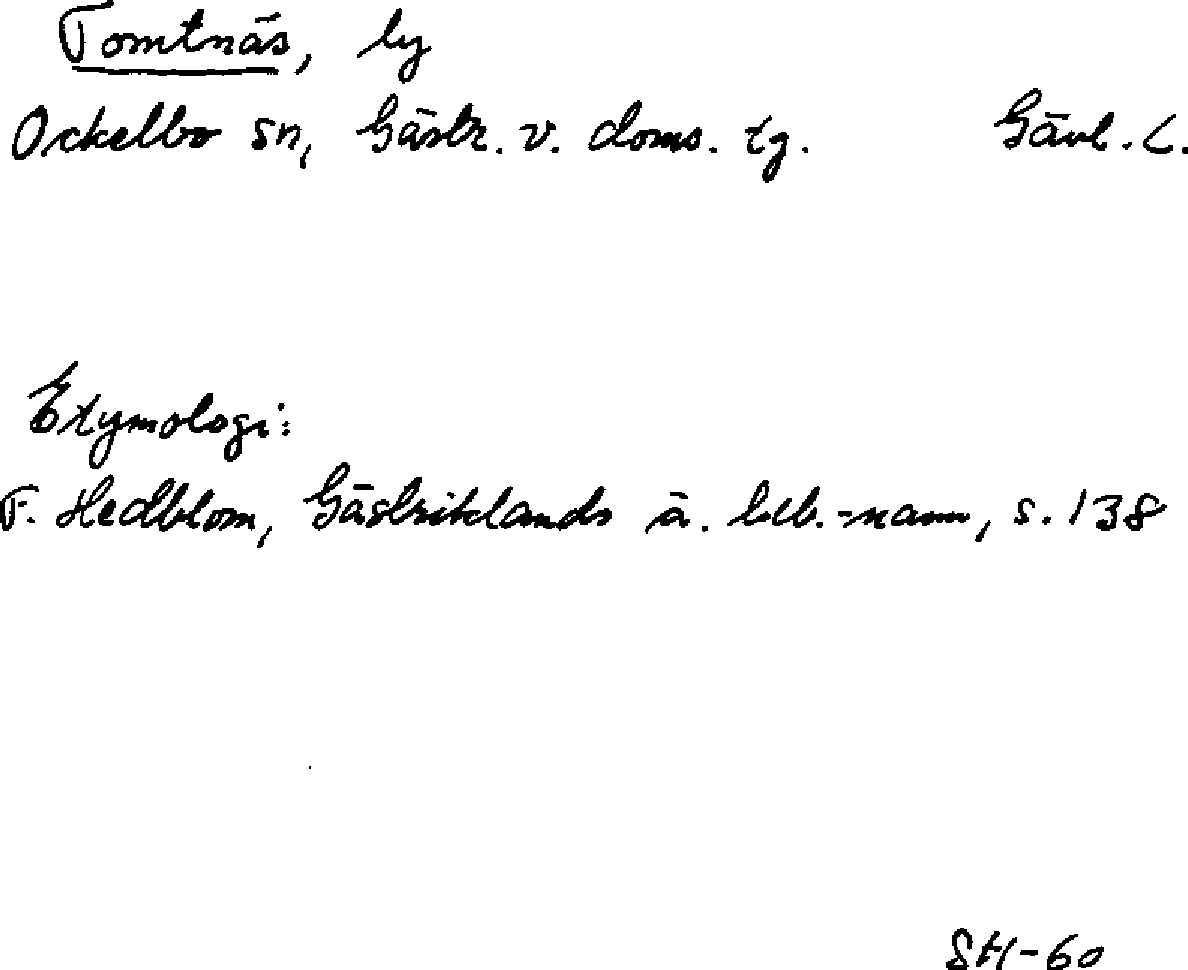 Tomtnäs, by
Ockelbo sn, Gästr. v. doms. tg. Gävl. L.
Etymologi:
F. Hedblom, Gästriklands ä. beb.-namn, s. 138
SH-60